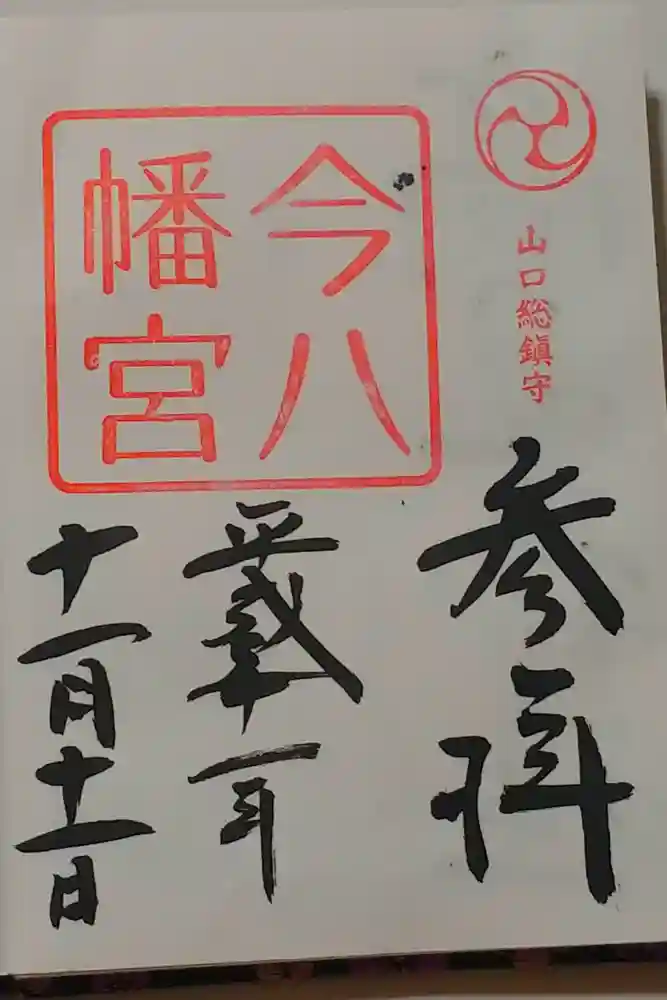 山口総鎭守
参拝
今八
幡宮
平成一年
十一月十一日